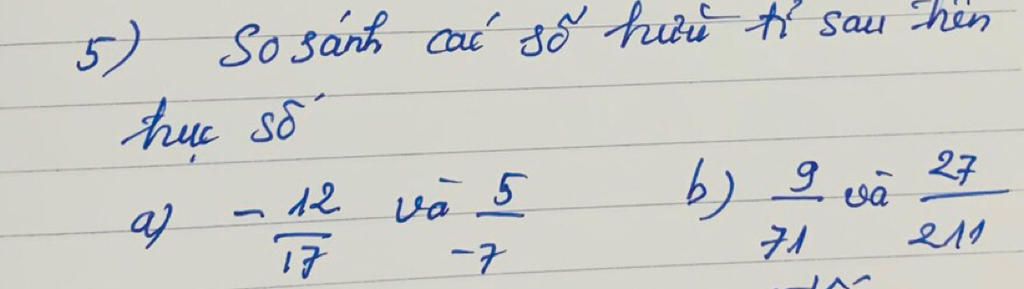 5) So sánh các số hữu tỉ sau trên
trục số
a) - 12/17 và 5/-7 b) 9/71 và 27/211